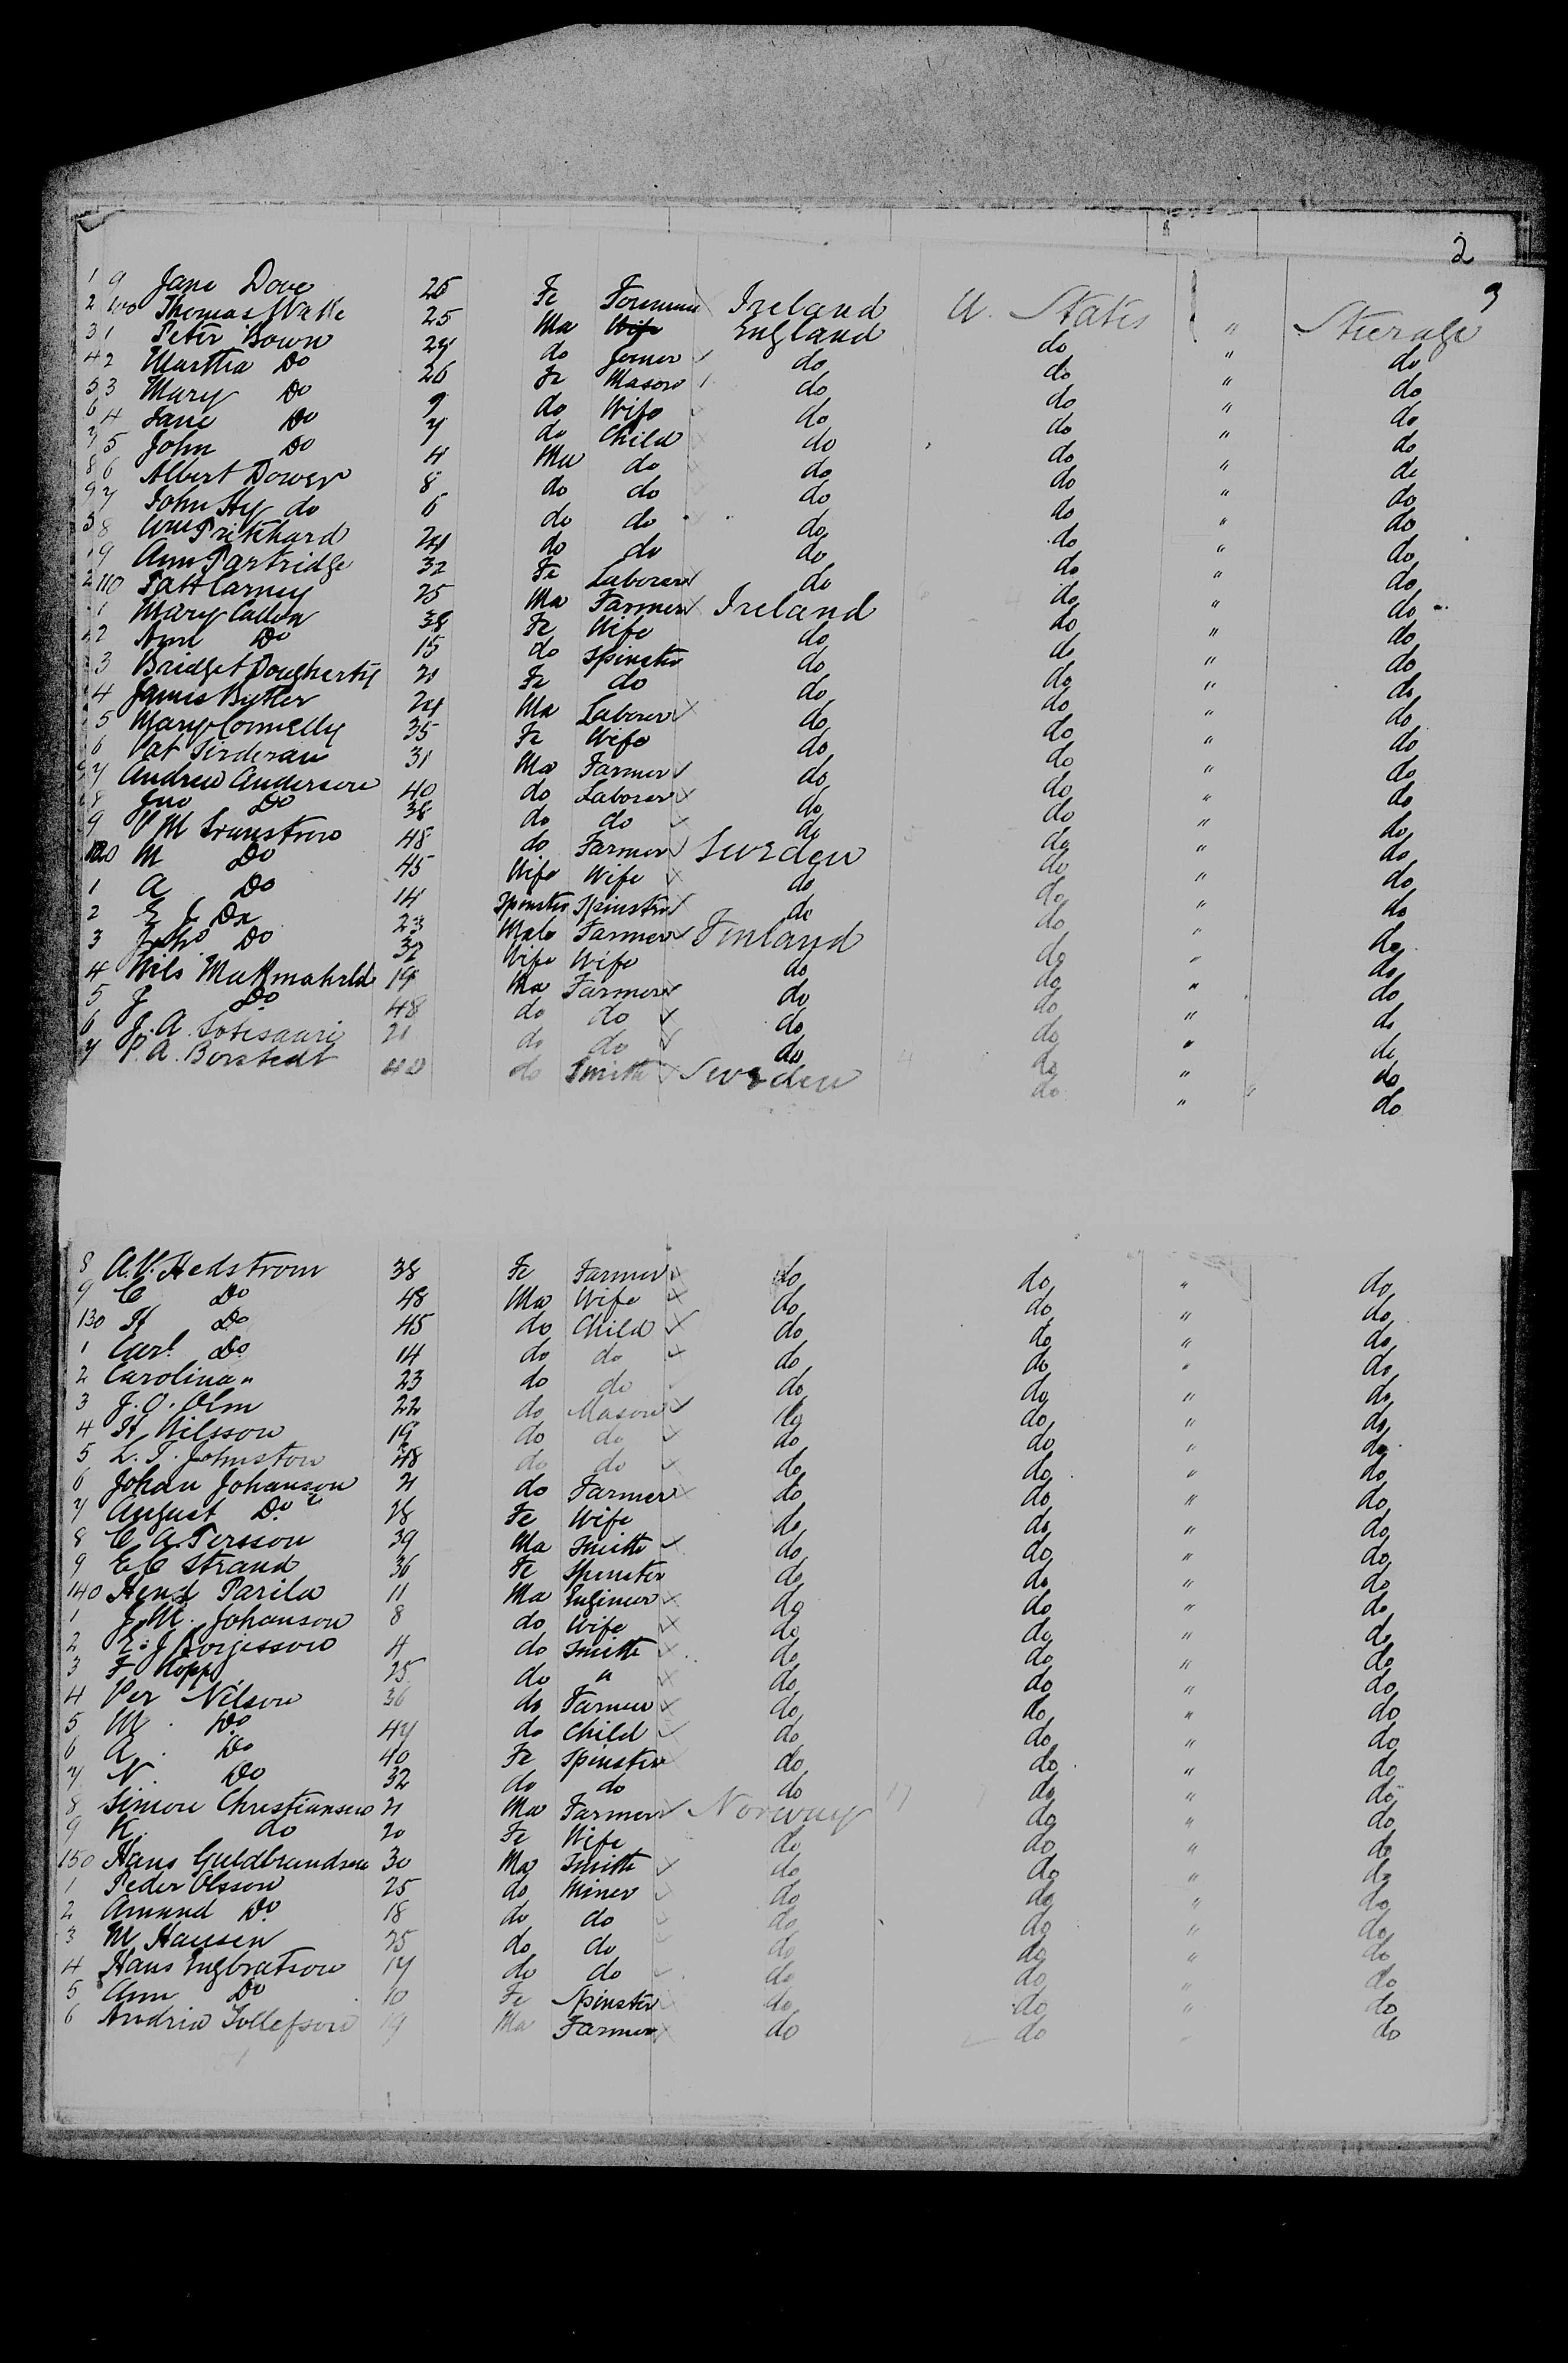 2
3
1 9 Jane Dove 25 Fe Ireland U. States " Steerage
2 100 Thomas 25 Ma Wife England do " do
3 1 Peter Bown 24 do Joiner do do " do
4 2 Martha Do 26 Fe Mason do do " do
5 3 Mary Do 9 do Wife do do " do
6 4 Jane Do 7 do Child do do " do
7 5 John Do 4 Ma do do do " do
8 6 Albert Dower 8 do do do do " do
9 7 John Hy do 6 do do do do " do
8 Wm Pritchard 24 do do do do " do
1 9 Ann Partridge 32 Fe Laborer do do " do
2 110 Patt Carney 25 Ma Farmer Ireland do " do
1 Mary 38 Fe Wife do do " do
2 Ann Do 15 do Spinster do do " do
3 Bridget Dougherty 21 Fe do do do " do
4 James Butler 24 Ma Laborer do do " do
5 Mary Connelly 35 Fe Wife do do " do
6 Pat 31 Ma Farmer do do " do
7 Andrew Anderson 40 do Laborer do do " do
8 Jno Do 38 do do do do " do
9 48 do Farmer Sweden do " do
120 M Do 45 Wife Wife do do " do
1 A Do 14 Spinster Spinster do do " do
2 E J Do 23 Male Farmer Finland do " do
3 Do 32 Wife Wife do do " do
4 Nils 19 Ma Farmer do do " do
5 J Do 48 do do do do " do
6 J. A. Sotisaari 21 do do do do " do
7 P. A. Borstedt 40 do Smith Sweden do " do
8 A. V. Hedstrom 38 Fe Farmer do do " do
9 C Do 48 Ma Wife do do " do
130 H Do 45 do Child do do " do
1 Carl Do 14 do do do do " do
2 Carolina " 23 do do do do " do
3 J. O. Olm 22 do Mason do do " do
4 H Nilsson 19 do do do do " do
5 L. T. Johnston 48 do do do do " do
6 Johan Johanson 21 do Farmer do do " do
7 August Do 28 Fe Wife do do " do
8 C A. Persson 39 Ma Smith do do " do
9 E C Strand 36 Fe Spinster do do " do
140 Hend Parila 11 Ma Engineer do do " do
1 J. M. Johanson 8 do Wife do do " do
2 E. J Borjesson 4 do Smith do do " do
3 F Kopp 25 do " do do " do
4 Per Nilson 36 do Farmer do do " do
5 M. Do 47 do Child do do " do
6 A. Do 40 Fe Spinster do do " do
7 N. Do 32 do do do do " do
8 Simon Christiansen 21 Ma Farmer Norway do " do
9 K. do 20 Fe Wife do do " do
150 Hans Guldbrandsen 30 Ma Smith do do " do
1 Peder Olsson 25 do Miner do do " do
2 Amund Do 18 do do do do " do
3 M Hansen 25 do do do do " do
4 Hans Engbratson 17 do do do do " do
5 Ann Do 10 Fe Spinster do do " do
6 Andria Tollefson 19 Ma Farmer do do " do